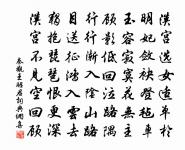 漢宮選女適單于
明妃斂袂登氈車
玉容寂寞花無主
顧影低回泣路隅
行行漸入陰山路
目送征鴻入雲去
獨抱琵琶恨更深
漢宮不見空回顧
秦觀王昭君